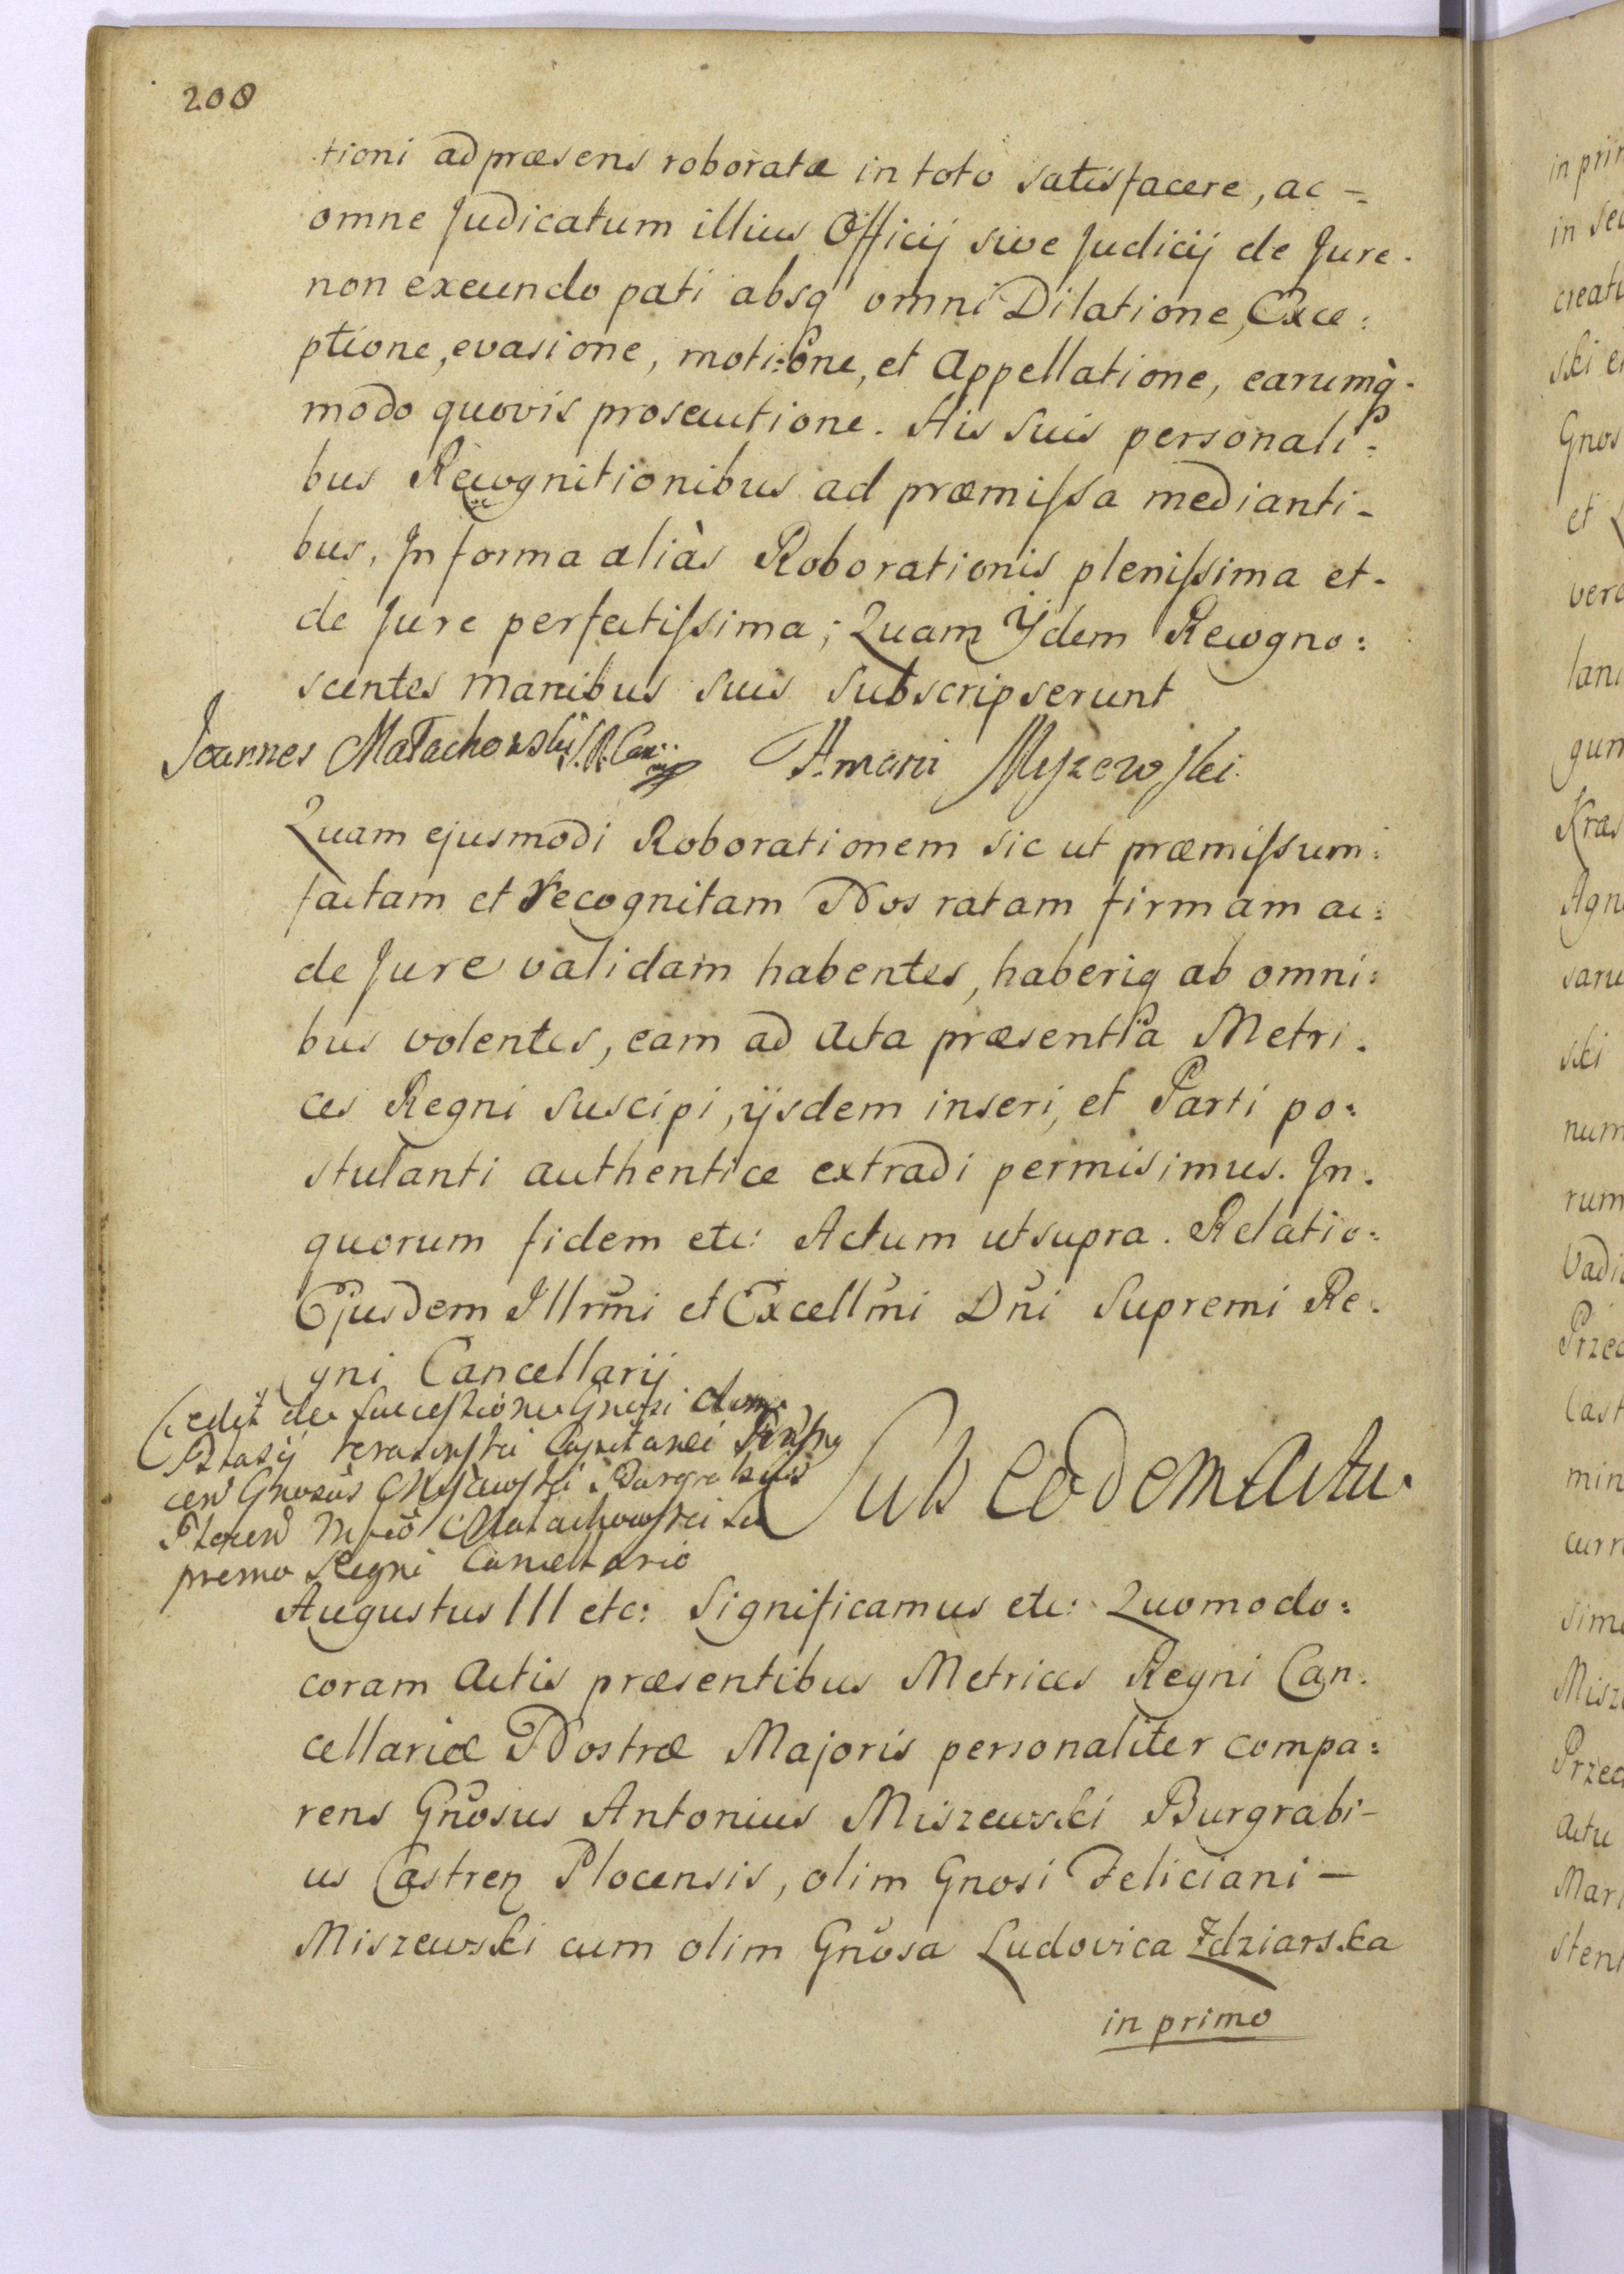 208
tioni ad præsens roboratæ in toto satisfacere, ac =
omne Judicatum illius Officij sive Judicij de Jure.
non exeundo pati absq omni Dilatione, Exce:
ptione, evasione, motione, et Appellatione, earumq̀.
modo quovis prosecutione. His suis personali:
bus Recognitionibus ad præmissa medianti-
bus, In forma aliàs Roborationis plenissima et-
de Jure perfectissima; Quam Ijdem Recogno:
scentes manibus suis subscripserunt
Joannes Małachowski S. R. Can: Antoni Myszewski
Quam ejusmodi Roborationem sic ut præmissum:
factam et recognitam Nos ratam firmam ac:
de Jure validam habentes, haberiq ab omni:
bus volentes, eam ad Acta præsentia Metri.
ces Regni suscipi, ijsdem inseri, et Parti po:
stulanti authentice extradi permisimus. In.
quorum fidem etc: Actum ut supra. Relatio:
Ejusdem Illrm̃i et Excellm̃i Dñi Supremi Re:
gni Cancellarij
Cedit de successione Gnosi
Capitanei
cen Gnosus Myszewski Burgrabius
Małachowski Su
premo Regni Cancellario
Sub eodem Actu
Augustus III etc: Significamus etc: Quomodo:
coram Actis præsentibus Metrices Regni Can:
cellariæ Nostræ Majoris personaliter compa:
rens Gñosus Antonius Miszewski Burgrabi-
us Castren Plocensis, olim Gnosi Feliciani —
Miszewski cum olim Gñosa Ludovica Zdziarska
in primo
in prim
in sec
creat
ski e
Gnos
et
vero
lani
gun
Kras
Agn
saru
ski
num
rum
Vadi
Przec
Cast
min
curr
sim
Misz
Przec
Actu
Mar
stent